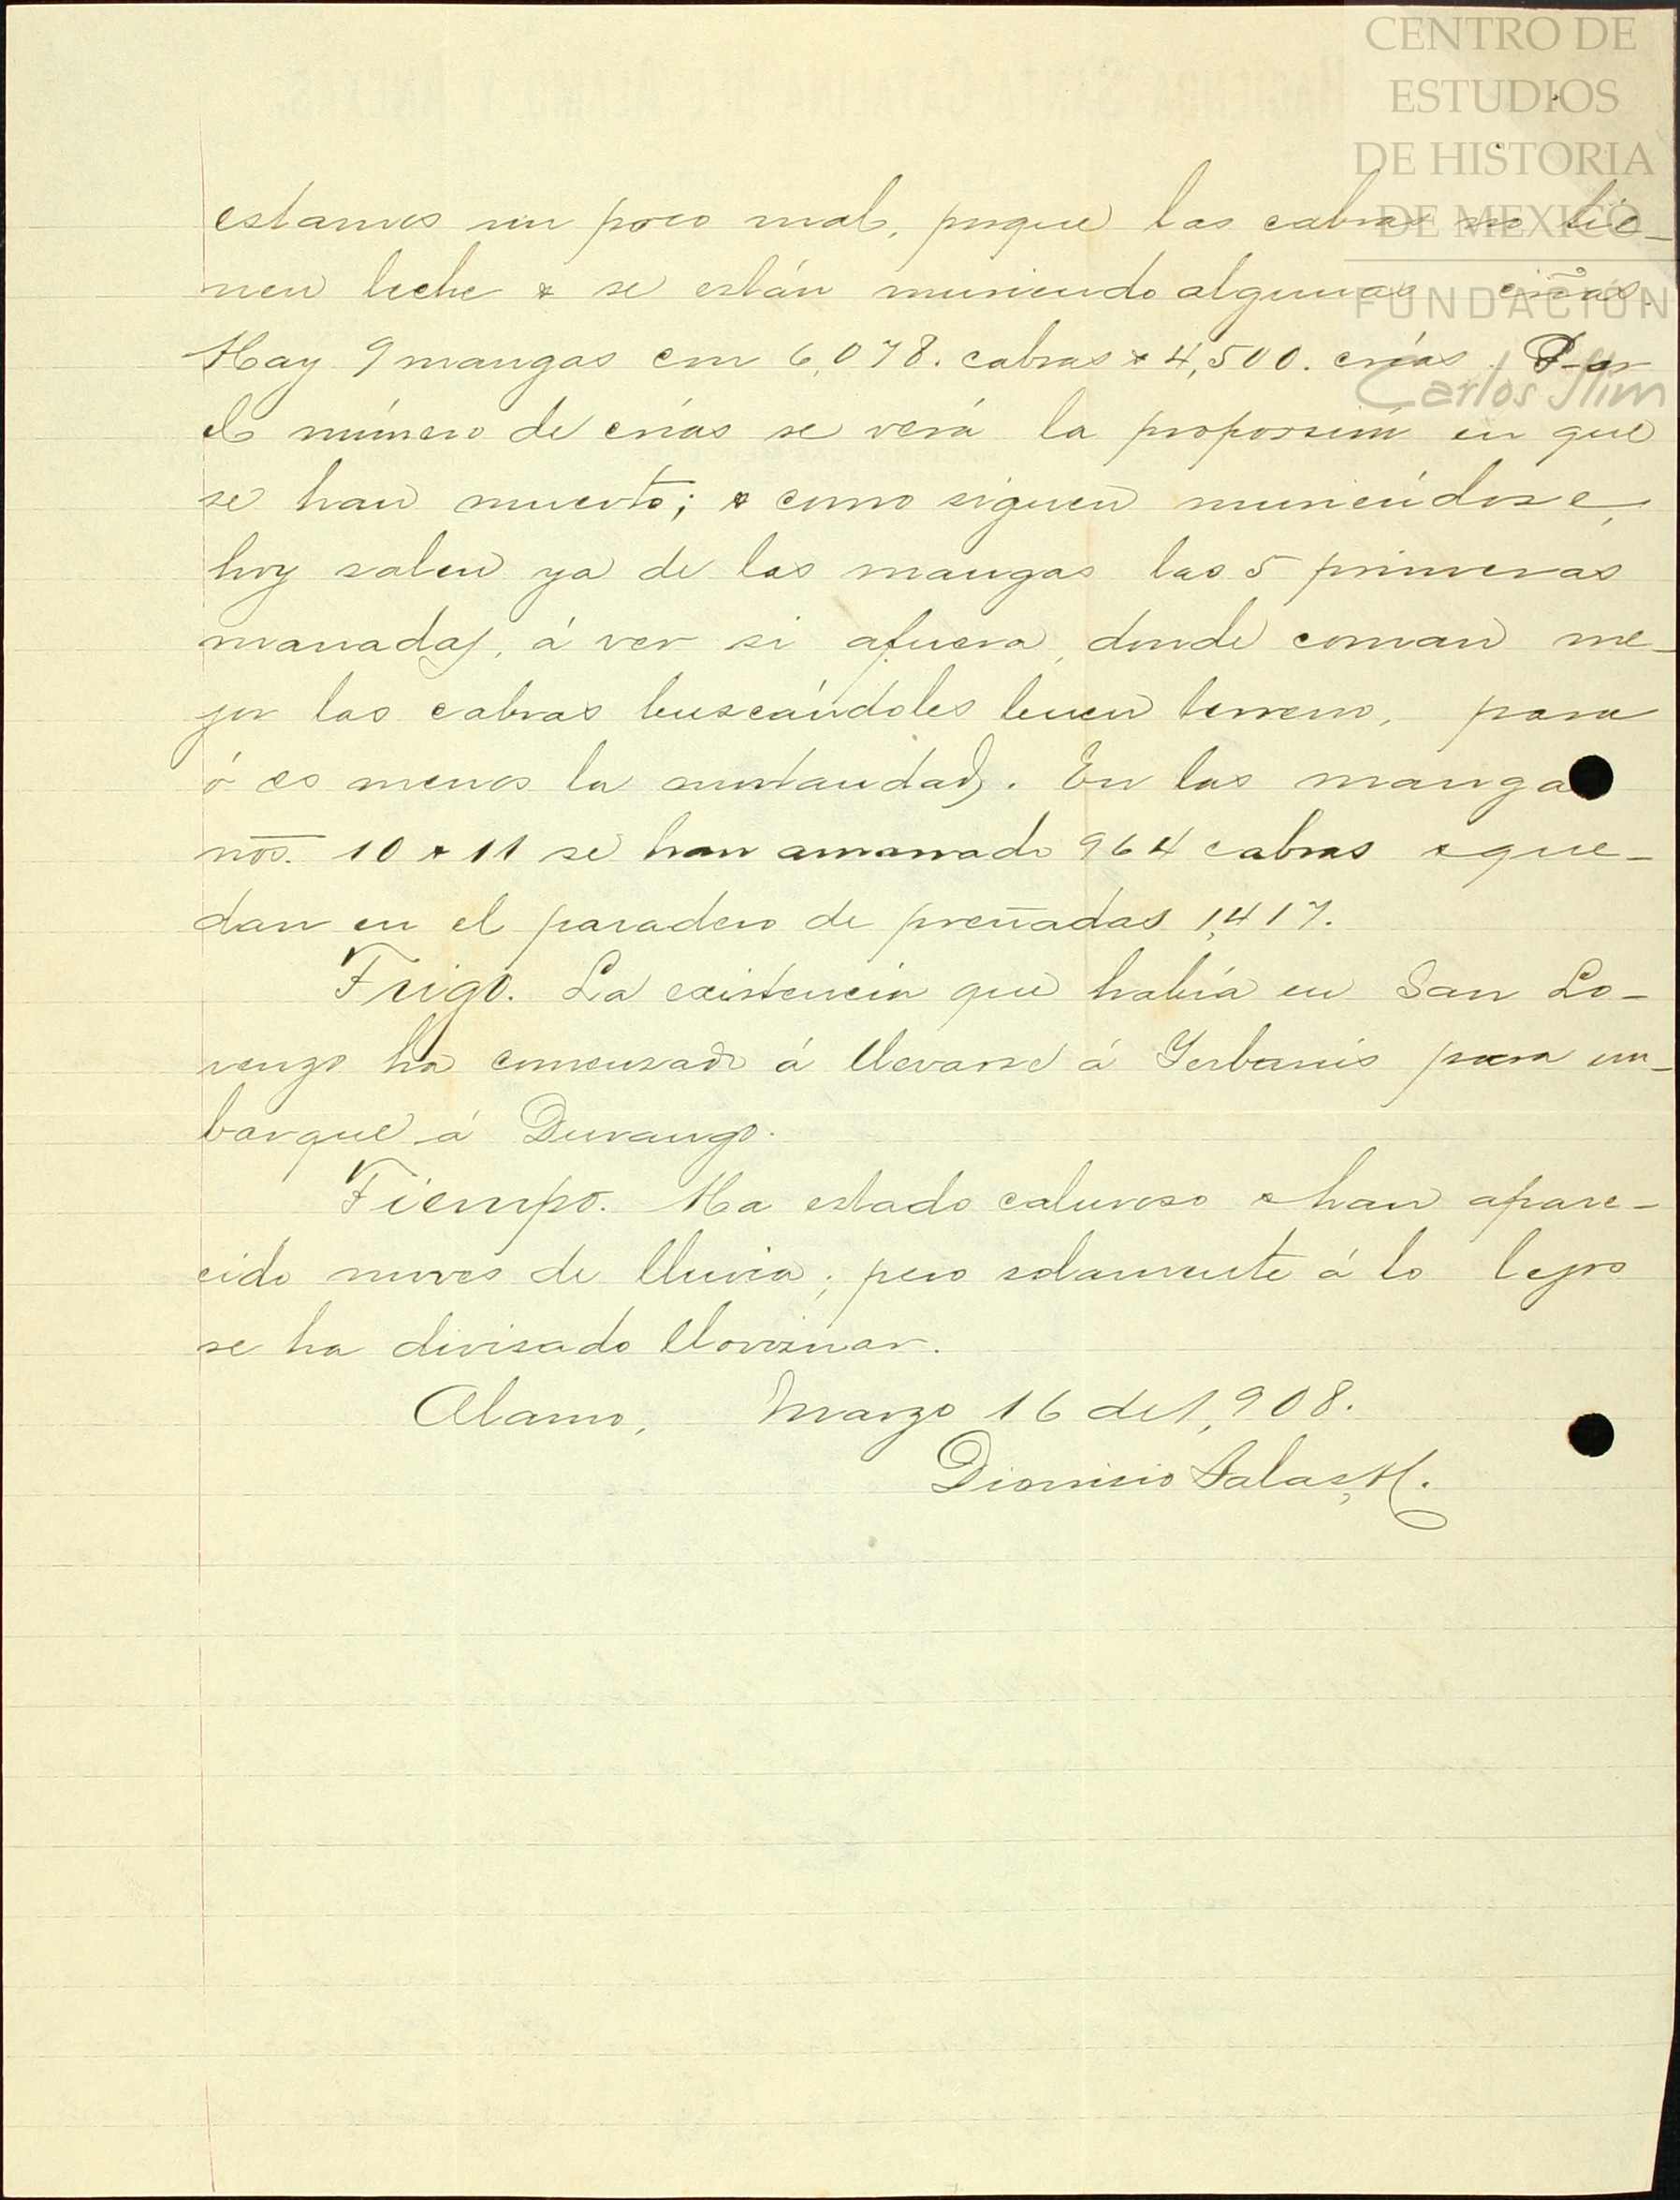 CENTRO DE
ESTUDIOS
DE HISTORIA
DE MEXICO
FUNDACIÓN
Carlos Slim
estamos un poco mal, porque las cabras no tie-
nen leche & se están muriendo algunas crías.
Hay 9 mangas con 6,078. cabras & 4,500. crías. Por
el número de crías se verá la proporsión en que
se han muerto; & como siguen muriéndose,
hoy salen ya de las mangas las 5 primeras
manadas, á ver si afuera, donde coman me-
jor las cabras buscándoles buen terreno, para
ó es menos la mortandad. En las mangas
nos. 10 & 11 se han amarrado 964 cabras & que-
dan en el paradero de preñadas 1,417.
Trigo. La existencia que había en San Lo-
renzo ha comenzado á llevarse á Yerbanís para em-
barque á Durango.
Tiempo. Ha estado caluroso & han apare-
cido nuves de lluvia; pero solamente á lo lejos
se ha divisado lloviznar.
Alamo, Marzo 16 de 1,908.
Dionisio Salas, H.